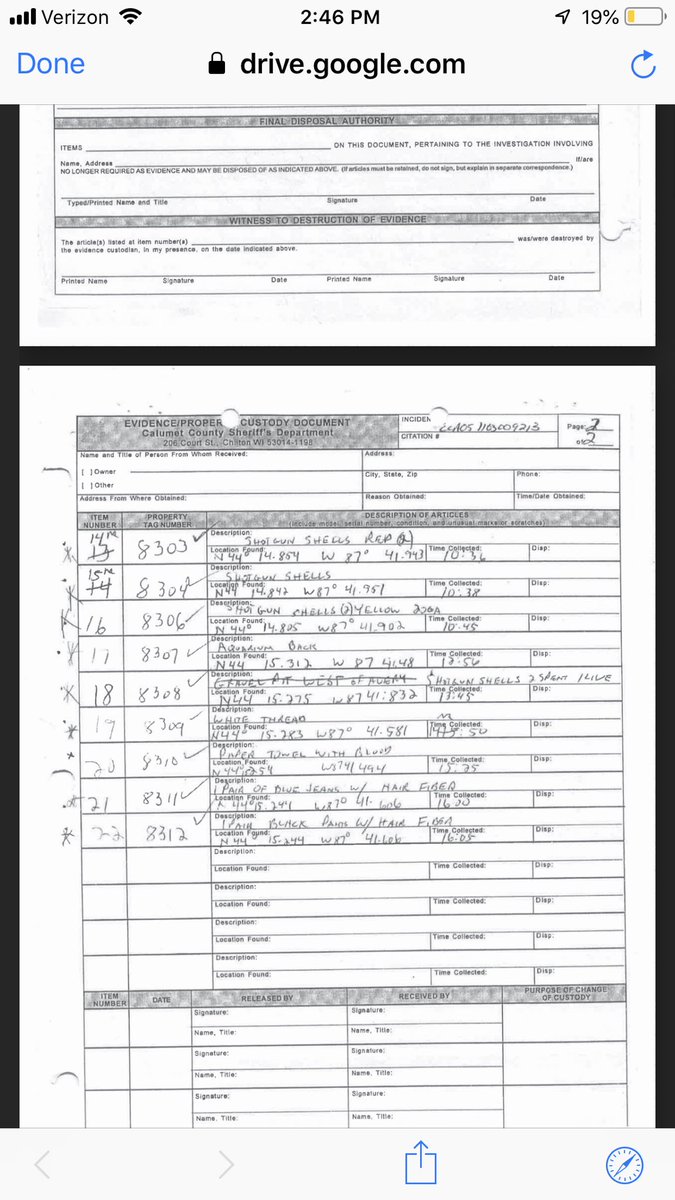 Verizon 2:46 PM 19%
Done drive.google.com
FINAL DISPOSAL AUTHORITY
ITEMS ON THIS DOCUMENT, PERTAINING TO THE INVESTIGATION INVOLVING
Name, Address If/are
NO LONGER REQUIRED AS EVIDENCE AND MAY BE DISPOSED OF AS INDICATED ABOVE. (If articles must be retained, do not sign, but explain in separate correspondence.)
Typed/Printed Name and Title Signature Date
WITNESS TO DESTRUCTION OF EVIDENCE
The article(s) listed at item number(s) was/were destroyed by
the evidence custodian, in my presence, on the date indicated above.
Printed Name Signature Date Printed Name Signature Date
EVIDENCE/PROPER CUSTODY DOCUMENT
Calumet County Sheriff's Department
206 Court St., Chilton WI 53014-1198
INCIDEN
CITATION #
Page: 2
of: 2
Name and Title of Person From Whom Received: Address:
[ ] Owner
[ ] Other
City, State, Zip Phone:
Address From Where Obtained: Reason Obtained: Time/Date Obtained:
ITEM NUNBER PROPERTY TAG NUMBER DESCRIPTION OF ARTICLES
(Include model, serial number, condition, and unusual marks or scratches)
14 13 8303 Description: SHOTGUN SHELLS RED (2)
Location Found: N 44° 14.854 W 87° 41.943 Time Collected: 10:36 Disp:
15 14 8304 Description: SHOTGUN SHELLS
Location Found: N44 14.842 W87° 41.951 Time Collected: 10:38 Disp:
16 8306 Description: SHOTGUN SHELLS (2) YELLOW 20GA
Location Found: N 44° 14.805 W87° 41.902 Time Collected: 10:45 Disp:
17 8307 Description: AQUARIUM BACK
Location Found: N44 15.312 W 87 41.48 Time Collected: Disp:
18 8308 Description: GRAVEL PIT WEST OF AVERY SHOTGUN SHELLS 2 SPENT 1 LIVE
Location Found: N44 15.275 W87 41.832 Time Collected: 13:45 Disp:
19 8309 Description: WHITE THREAD
Location Found: N44° 15.283 W87° 41.581 Time Collected: Disp:
20 8310 Description: PAPER TOWEL WITH BLOOD
Location Found: N 44°15254 W8741494 Time Collected: 15:25 Disp:
21 8311 Description: 1 PAIR OF BLUE JEANS W/ HAIR FIBER
Location Found: 44°15.244 W87° 41.606 Time Collected: 16:00 Disp:
22 8312 Description: 1 PAIR BLACK PANTS W/ HAIR FIBER
Location Found: N 44 15.244 W87° 41.606 Time Collected: 16:05 Disp:
Description:
Location Found: Time Collected: Disp:
Description:
Location Found: Time Collected: Disp:
Description:
Location Found: Time Collected: Disp:
Description:
Location Found: Time Collected: Disp:
ITEM NUMBER DATE RELEASED BY RECEIVED BY PURPOSE OF CHANGE OF CUSTODY
Signature: Signature:
Name, Title: Name, Title:
Signature: Signature:
Name, Title: Name, Title:
Signature: Signature:
Name, Title: Name, Title: